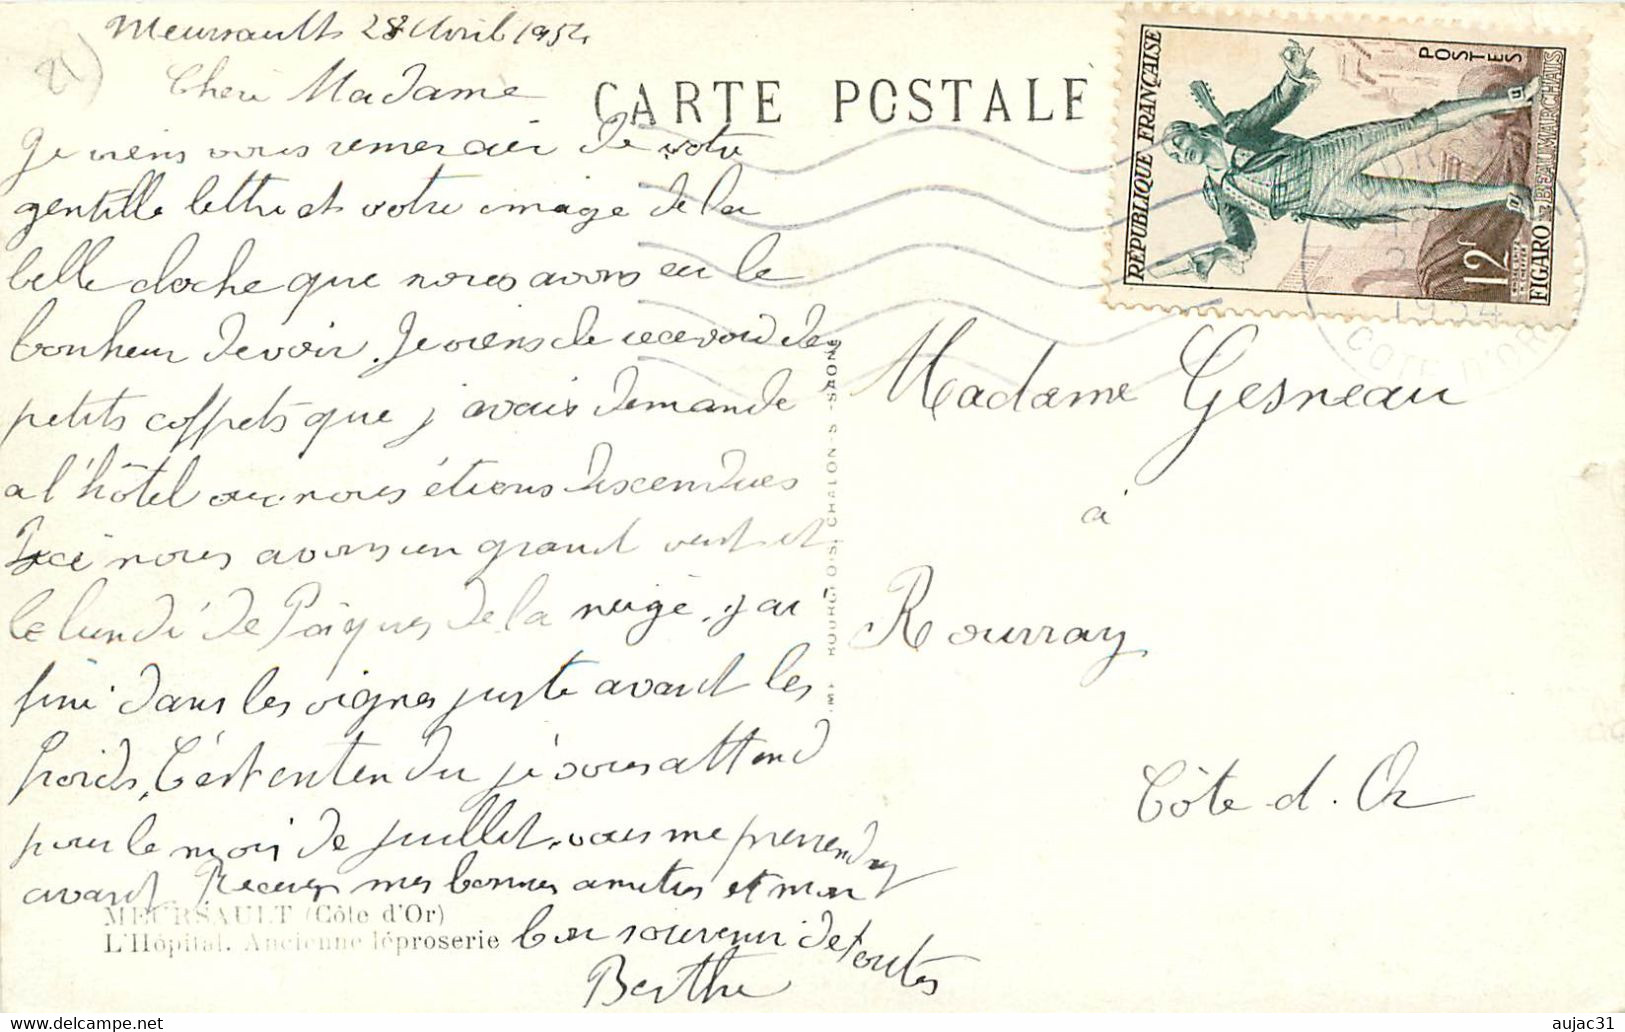 Meursault 28 Avril 1954
21)
Cheri Madame
CARTE POSTALE
Je viens vous remercier de votre
gentille lettre et votre image de la
belle cloche que nous avons eu le
bonheur de voir. Je viens de recevoir des
petits coffrets que j'avais demande
a l'hôtel ou nous étions descendues
Ici nous avons un grand vent et
le lundi de Pâques de la neige. j'ai
fini dans les vignes juste avant les
froids, C'est entendu je vous attend
pour le mois de juillet, vous me prevendrez
avant Recevez mes bonnes amities et mon
bon souvenir de toutes
Berthe
MEURSAULT (Côte d'Or)
L'Hôpital. Ancienne léproserie
BOURGEOIS, CHALON-S-SAONE
REPUBLIQUE FRANÇAISE
POSTES
12F
FIGARO DE BEAUMARCHAIS
1954
COTE D'OR
Madame Gesneau
à
Rouvray
Côte d. Or
aujac31